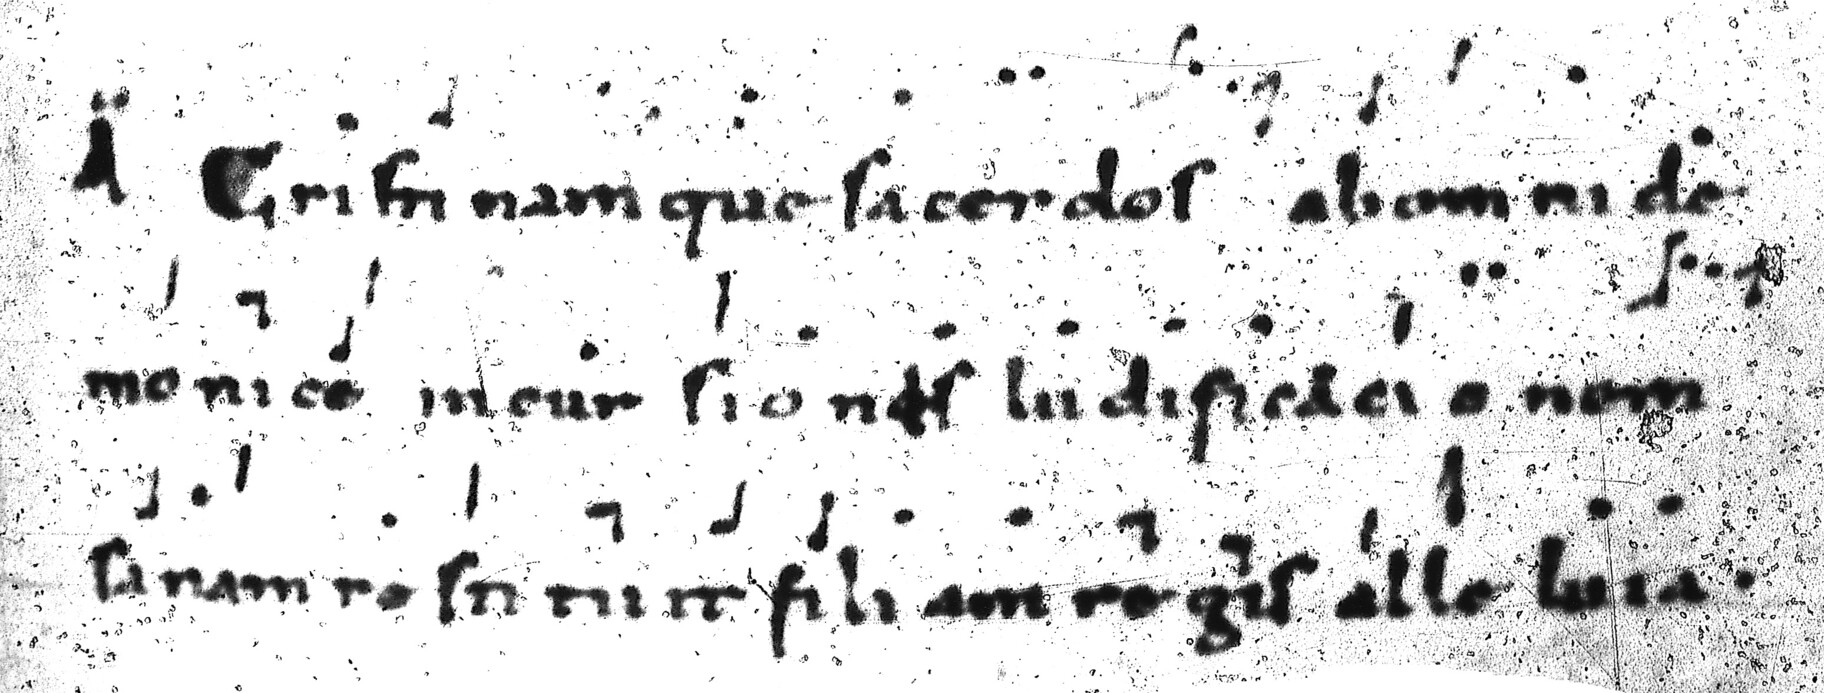 A Cristi namque sacerdos ab omni de
monice incursionis ludificacionem
sanam restituit filiam regis alleluia.